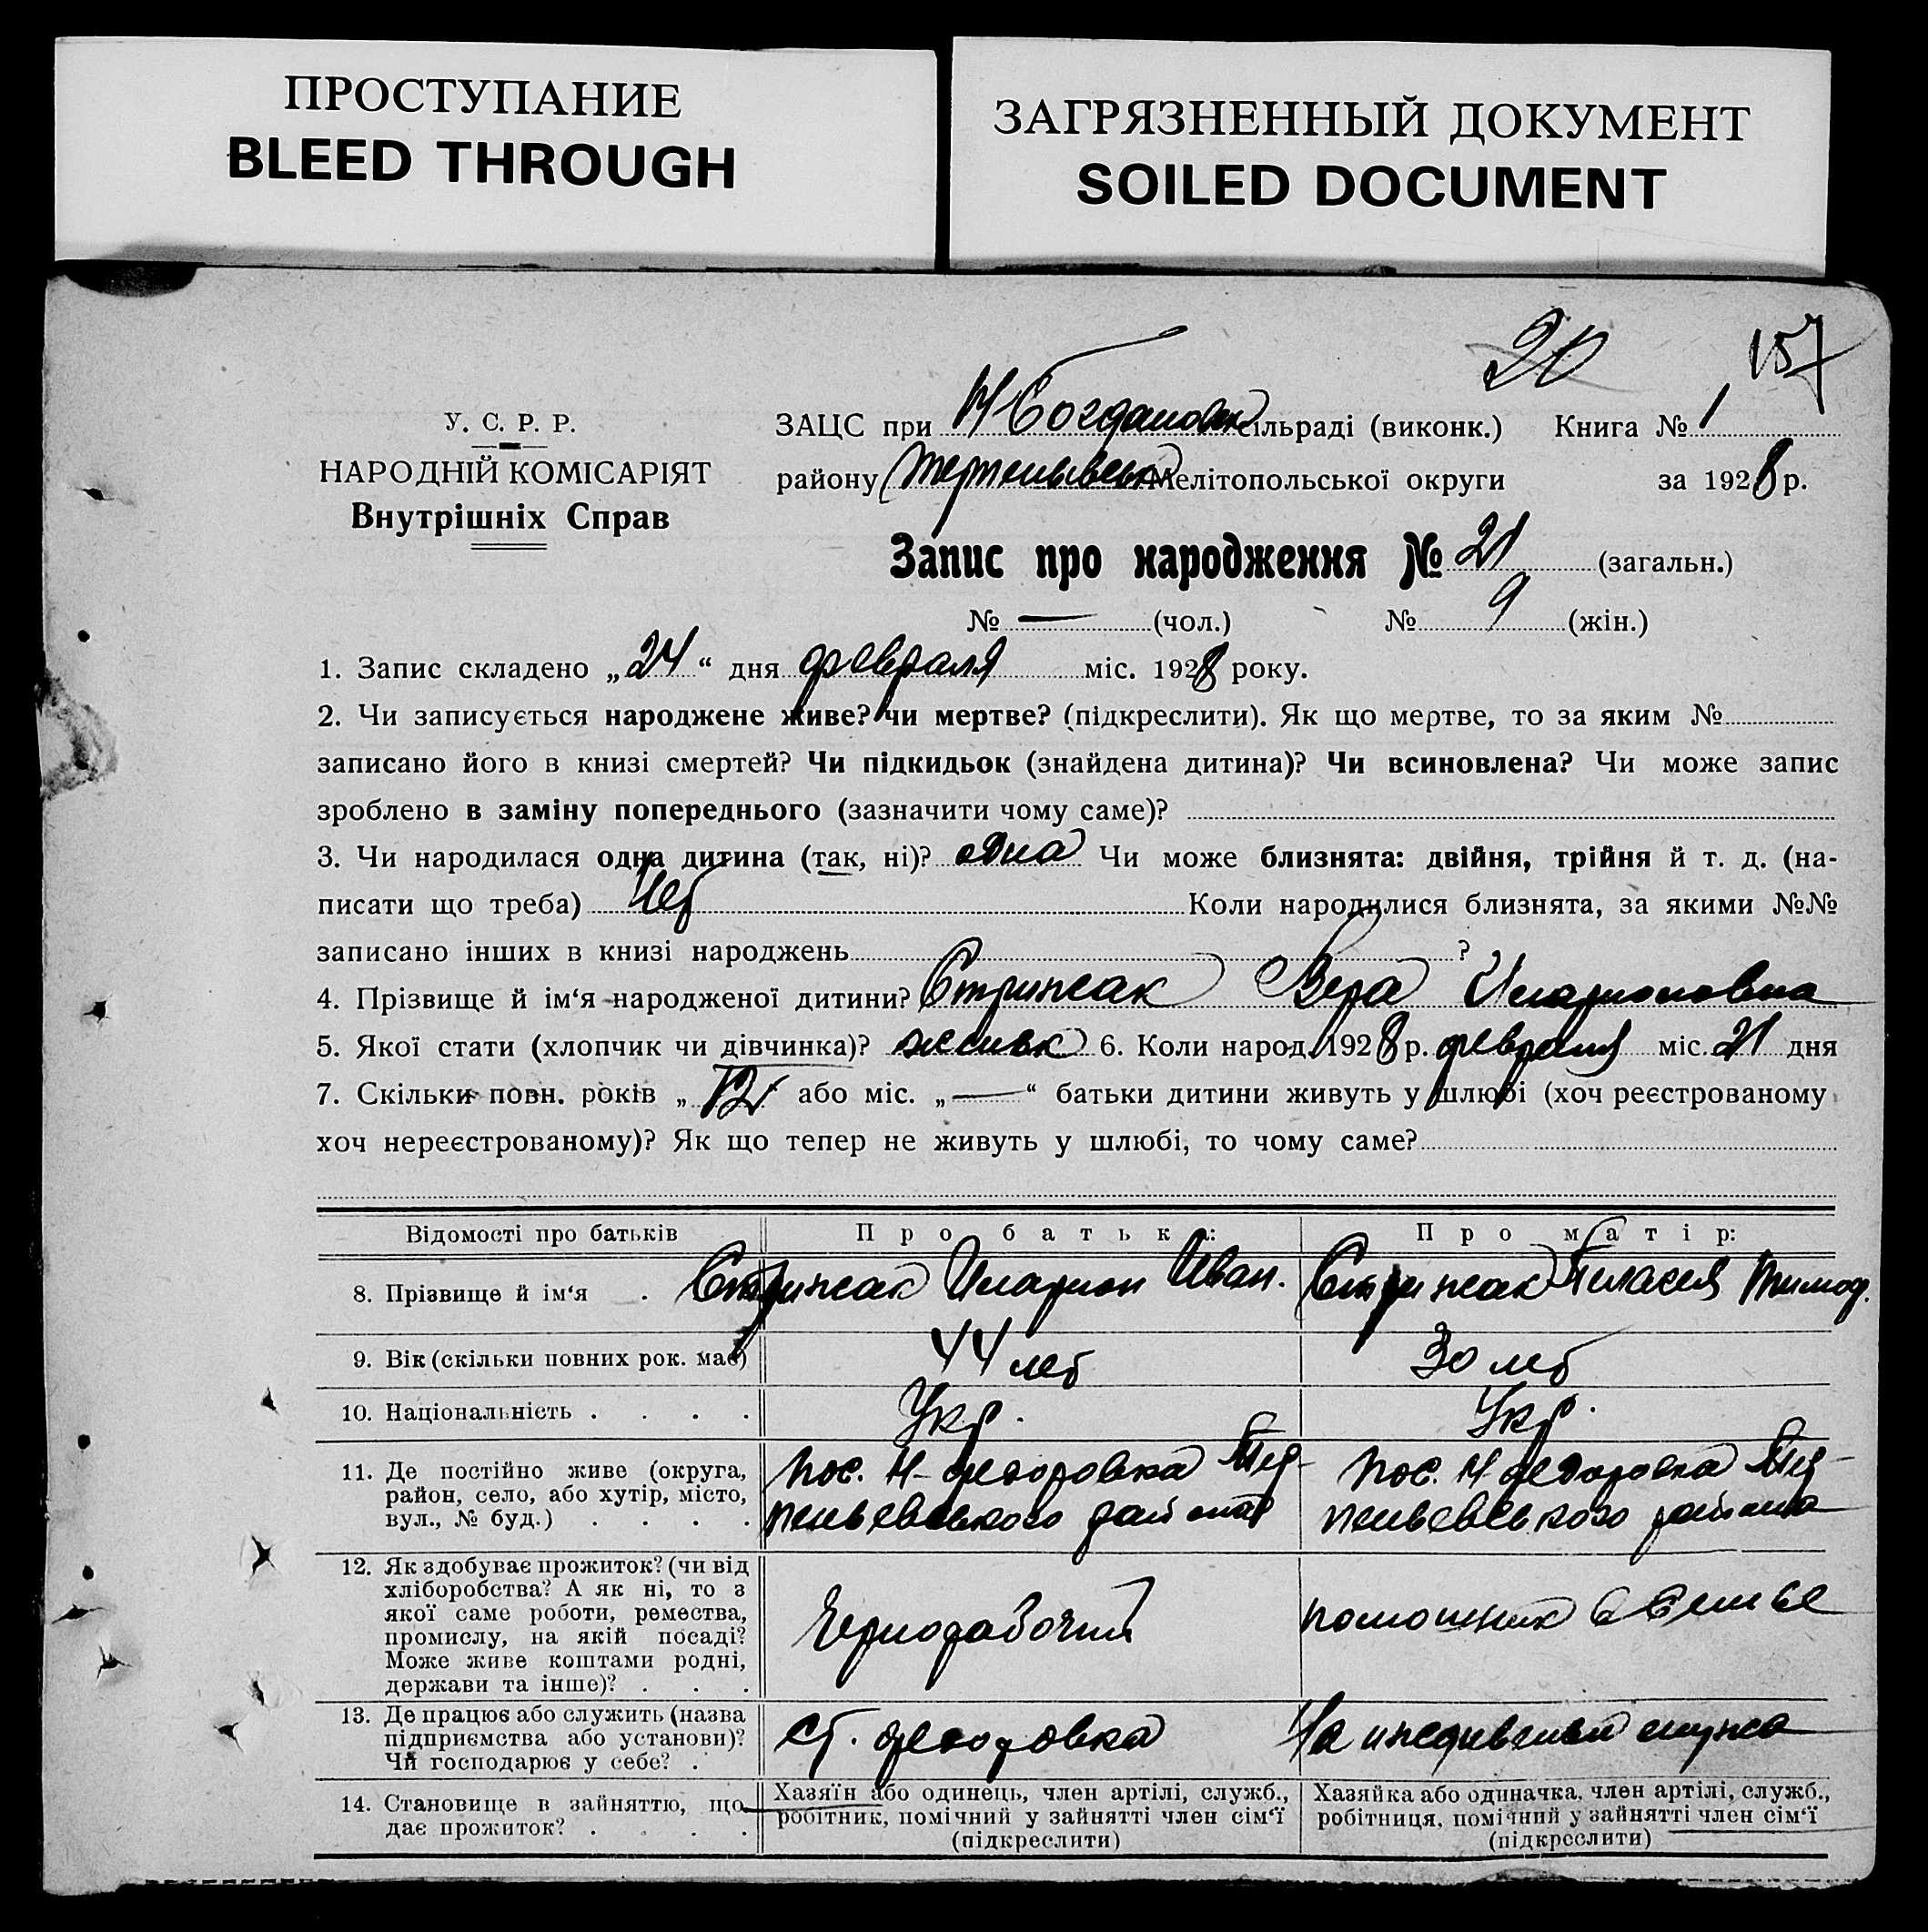 ПРОСТУПАНИЕ
BLEED THROUGH
ЗАГРЯЗНЕННЫЙ ДОКУМЕНТ
SOILED DOCUMENT
20 157
У. С. Р. Р.
НАРОДНІЙ КОМІСАРІЯТ
Внутрішніх Справ
ЗАЦС при Н Богдановск сільраді (виконк.) Книга № 1
району Терпеньевськ Мелітопольської округи за 1928 р.
Запис про народження № 21 (загальн.)
№ — (чол.) № 9 (жін.)
1. Запис складено „24“ дня февраля міс. 1928 року.
2. Чи записується народжене живе? чи мертве? (підкреслити). Як що мертве, то за яким №
записано його в книзі смертей? Чи підкидьок (знайдена дитина)? Чи всиновлена? Чи може запис
зроблено в заміну попереднього (зазначити чому саме)?
3. Чи народилася одна дитина (так, ні)? одна Чи може близнята: двійня, трійня й т. д. (на-
писати що треба) Нет Коли народилися близнята, за якими №№
записано інших в книзі народжень ?
4. Прізвище й ім‘я народженої дитини? Стрижак Вера Иларионовна
5. Якої стати (хлопчик чи дівчинка)? женск 6. Коли народ. 1928 р. февраля міс. 21 дня
7. Скільки повн. років „12“ або міс. „—“ батьки дитини живуть у шлюбі (хоч реєстрованому
хоч нереєстрованому)? Як що тепер не живуть у шлюбі, то чому саме?
Відомості про батьків Про батька: Про матір:
8. Прізвище й ім‘я . Стрижак Иларион Иван. Стрижак Пелагея Тимоф.
9. Вік (скільки повних рок. має) 44 лет 30 лет
10. Національність . . . . Укр. Укр.
11. Де постійно живе (округа,
район, село, або хутір, місто,
вул., № буд.) . . . .
пос. Н-федоровка Тер-
пеньевського района
пос. Н-федоровка Тер-
пеньевського района
12. Як здобуває прожиток? (чи від
хліборобства? А як ні, то з
якої саме роботи, ремества,
промислу, на якій посаді?
Може живе коштами родні,
держави та інше)? . . .
Чернорабочий
помощник в семье
13. Де працює або служить (назва
підприємства або установи)?
Чи господарює у себе? .
ст. федоровка
На иждивении мужа
14. Становище в зайняттю, що
дає прожиток? . . . .
Хазяїн або одинець, член артілі, служб.,
робітник, помічний у зайнятті член сім‘ї
(підкреслити)
Хазяйка або одиначка, член артілі, служб.,
робітниця, помічний у зайнятті член сім‘ї
(підкреслити)